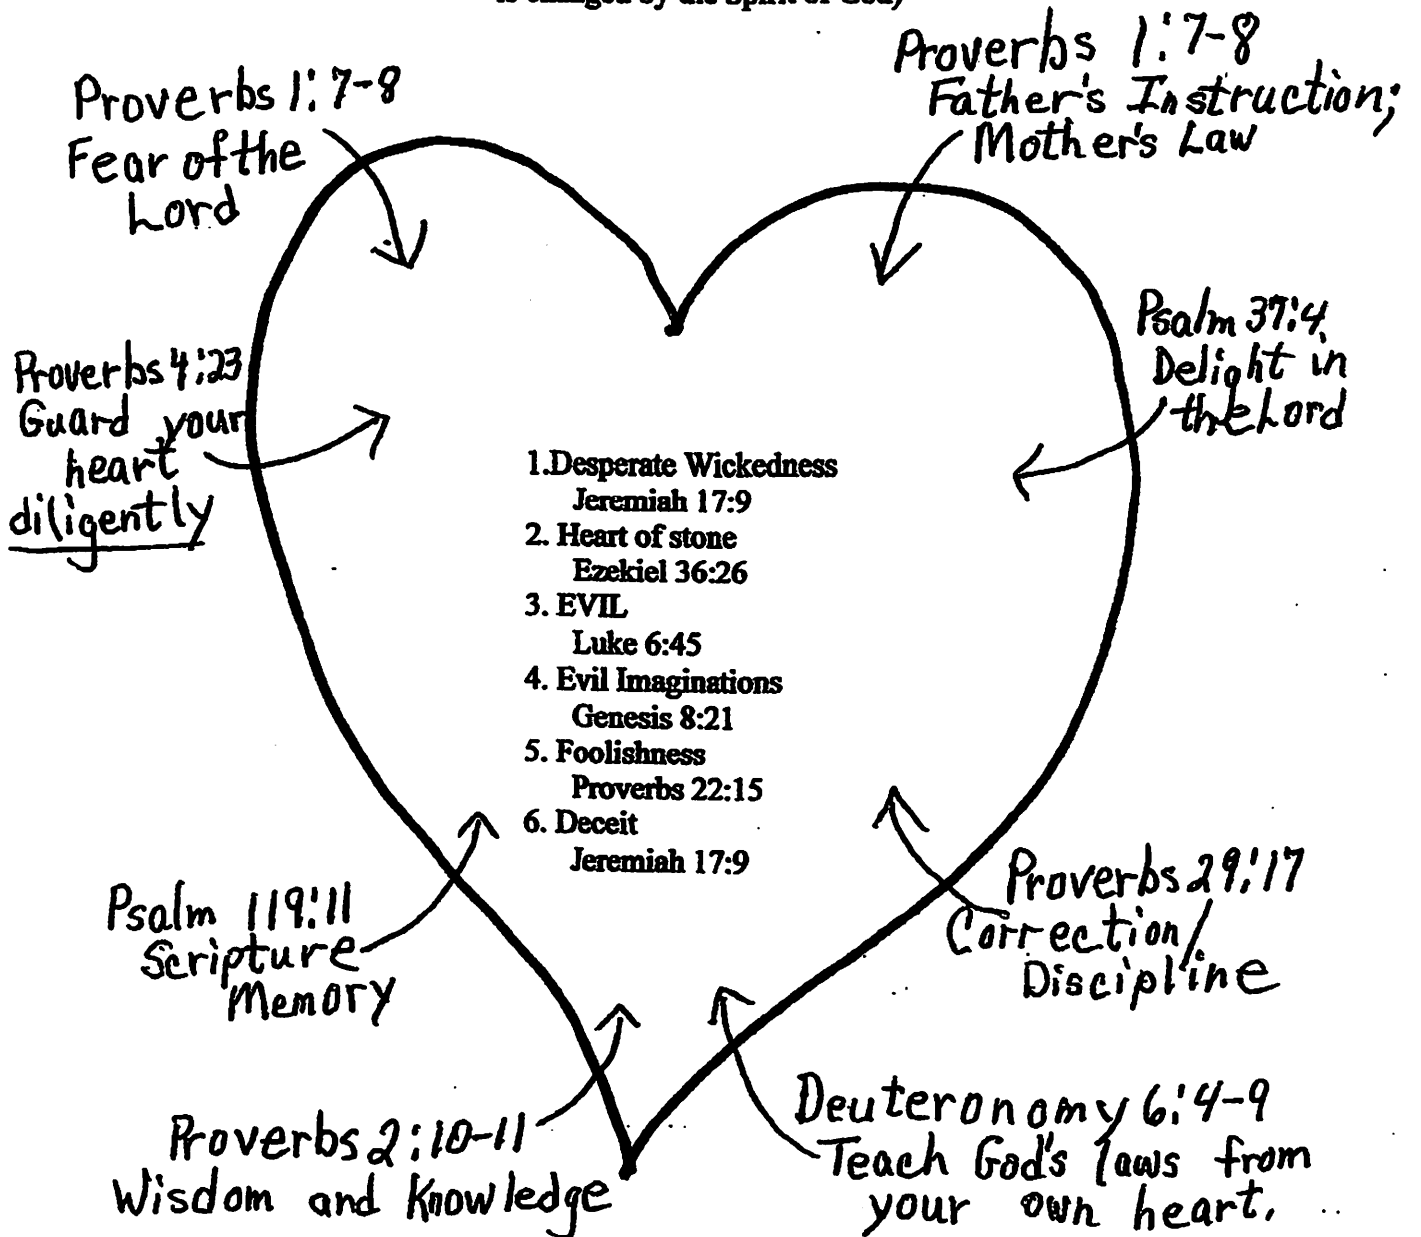 is changed by the Spirit of God)
Proverbs 1:7-8
Fear of the
Lord
Proverbs 1:7-8
Father's Instruction;
Mother's Law
Proverbs 4:23
Guard your
heart
diligently
Psalm 37:4
Delight in
the Lord
1.Desperate Wickedness
Jeremiah 17:9
2. Heart of stone
Ezekiel 36:26
3. EVIL
Luke 6:45
4. Evil Imaginations
Genesis 8:21
5. Foolishness
Proverbs 22:15
6. Deceit
Jeremiah 17:9
Psalm 119:11
Scripture
Memory
Proverbs 29:17
Correction/
Discipline
Proverbs 2:10-11
Wisdom and Knowledge
Deuteronomy 6:4-9
Teach God's laws from
your own heart.